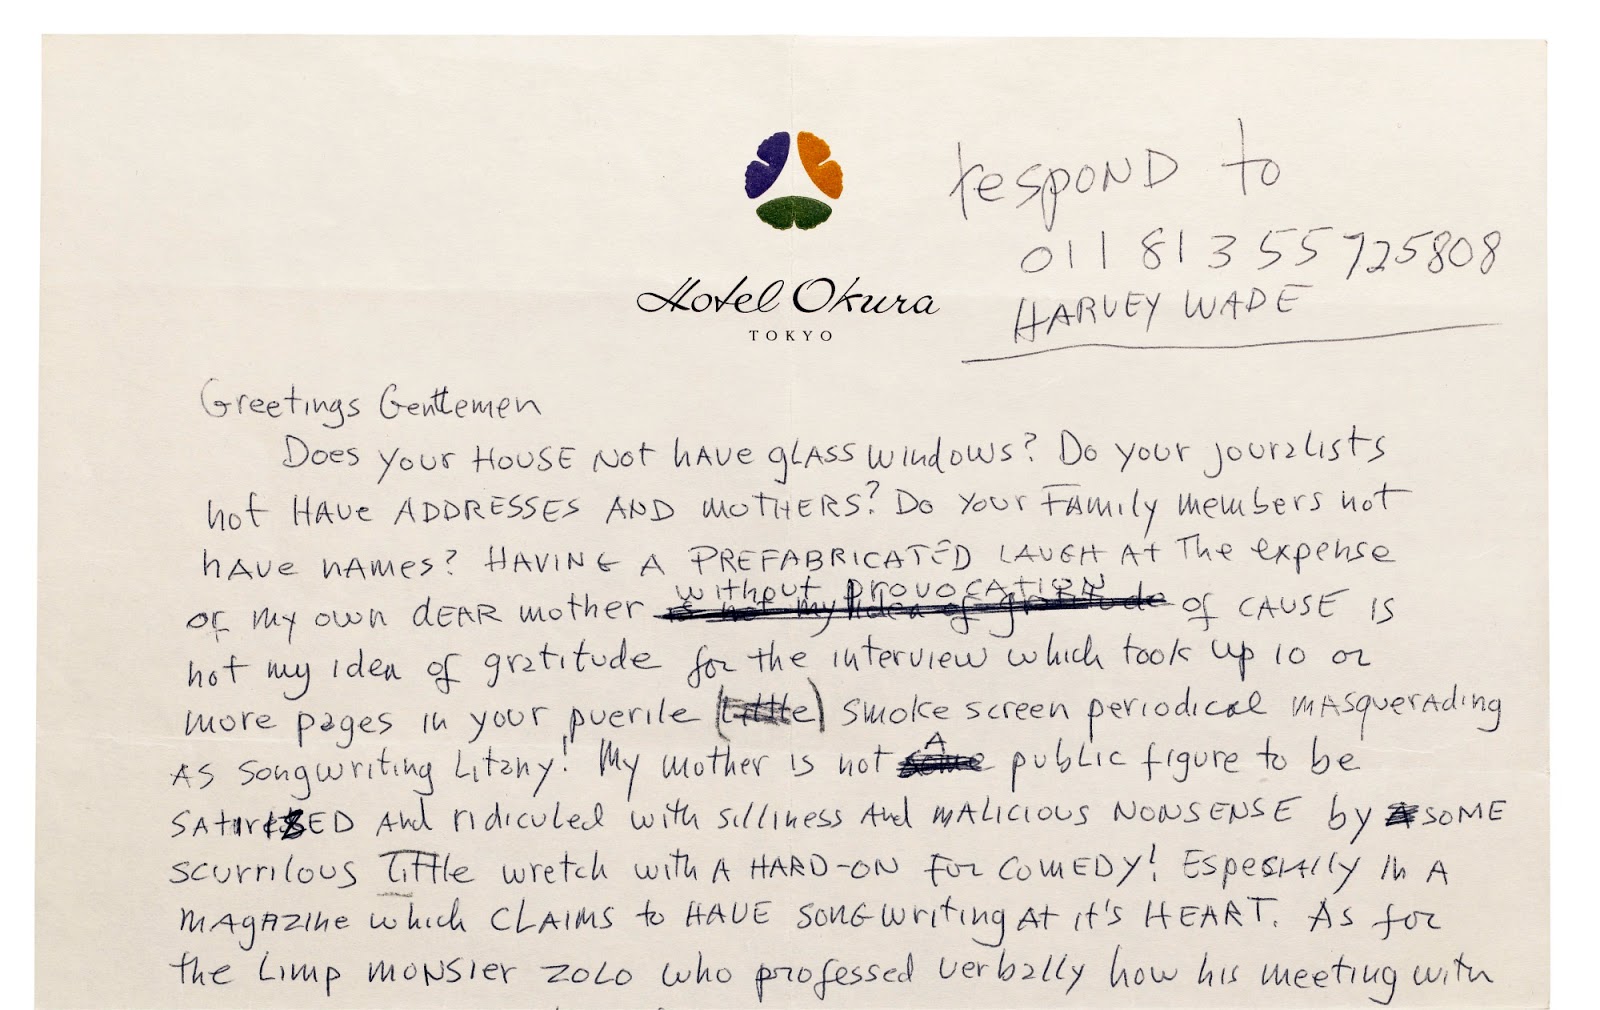 respond to
011 81 3 55 725808
HARVEY WADE
Hotel Okura
TOKYO
Greetings Gentlemen
Does your HOUSE Not HAVE GLASS windows? Do your jouralists
not HAVE ADDRESSES AND MOTHERS? Do your Family members not
have names? HAVING A PREFABRICATED LAUGH At The expense
of my own DEAR mother without PROVOCATION of CAUSE IS
not my idea of gratitude for the interview which took up 10 or
more pages in your puerile (Little) smoke screen periodical MASQUERADING
AS Songwriting Litany! My mother is not A public figure to be
SATIRIZED And ridiculed with silliness And MALICIOUS NONSENSE by SOME
scurrilous Little wretch with A HARD-ON For COMEDY! Especially In A
MAGAZINE which CLAIMS to HAVE SONGWriting AT it's HEART. As for
the Limp MONSIER ZOLO who professed verbally how his meeting with